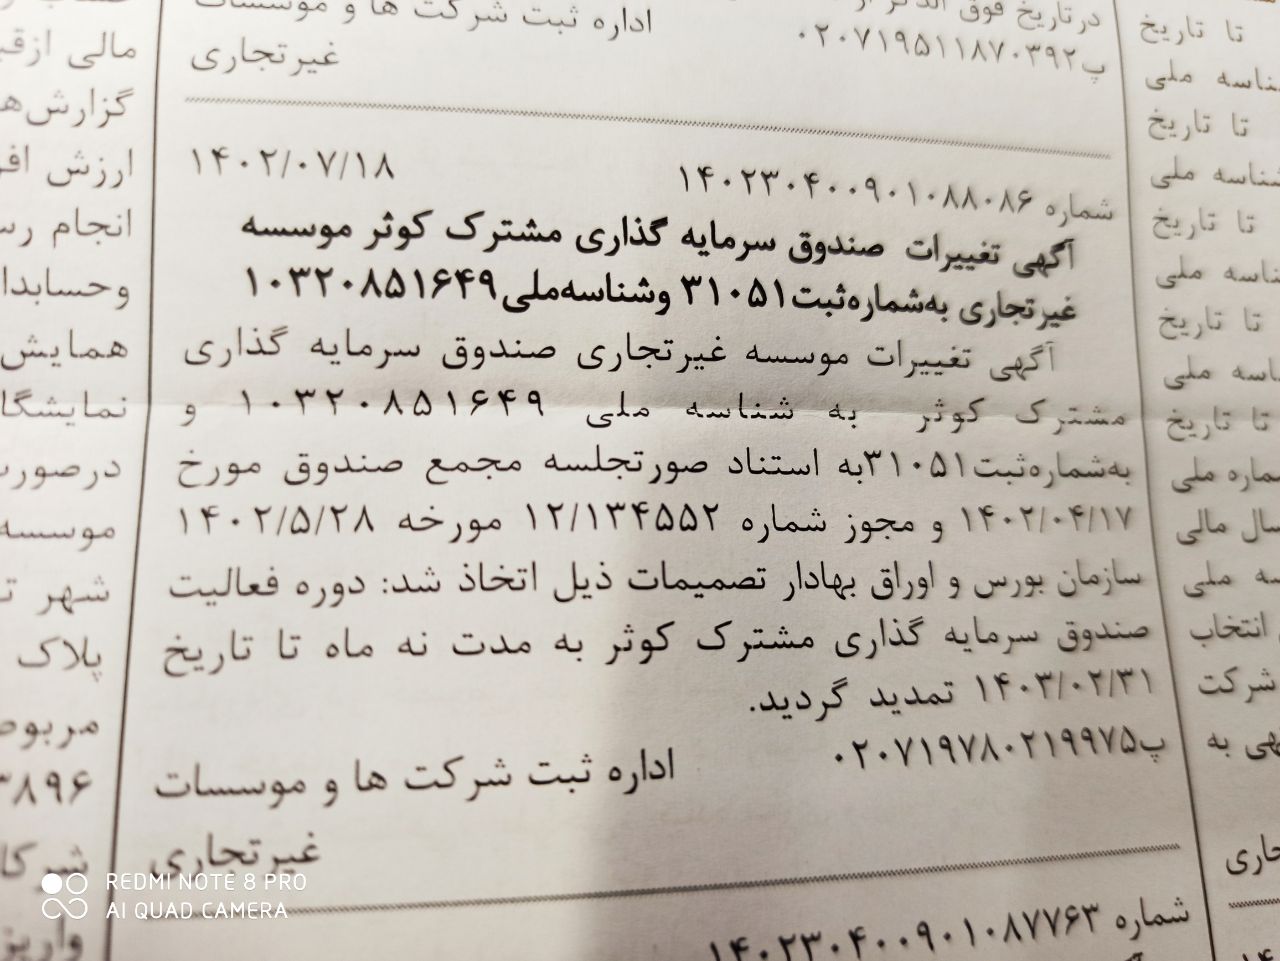 در تاریخ فوق الذکر
پ۰۲۰۷۱۹۵۱۱۸۷۰۳۹۲
اداره ثبت شرکت ها و موسسات
غیرتجاری
شماره ۱۴۰۲۳۰۴۰۰۹۰۱۰۸۸۰۸۶
۱۴۰۲/۰۷/۱۸
آگهی تغییرات صندوق سرمایه گذاری مشترک کوثر موسسه
غیرتجاری به‌شماره‌ثبت۳۱۰۵۱ وشناسه‌ملی۱۰۳۲۰۸۵۱۶۴۹
آگهی تغییرات موسسه غیرتجاری صندوق سرمایه گذاری
مشترک کوثر به شناسه ملی ۱۰۳۲۰۸۵۱۶۴۹ و
به‌شماره‌ثبت۳۱۰۵۱به استناد صورتجلسه مجمع صندوق مورخ
۱۴۰۲/۰۴/۱۷ و مجوز شماره ۱۲/۱۳۴۵۵۲ مورخه ۱۴۰۲/۵/۲۸
سازمان بورس و اوراق بهادار تصمیمات ذیل اتخاذ شد: دوره فعالیت
صندوق سرمایه گذاری مشترک کوثر به مدت نه ماه تا تاریخ
۱۴۰۳/۰۲/۳۱ تمدید گردید.
پ۰۲۰۷۱۹۷۸۰۲۱۹۹۷۵
اداره ثبت شرکت ها و موسسات
غیرتجاری
شماره ۱۴۰۲۳۰۴۰۰۹۰۱۰۸۷۷۶۳
تا تاریخ
ملی
تا تاریخ
ملی
تا تاریخ
ملی
تا تاریخ
ملی
تا تاریخ
ملی
مالی
ملی
انتخاب
شرکت
به
مالی
ارزش
انجام
همایش
موسسه
شهر
پلاک
REDMI NOTE 8 PRO
AI QUAD CAMERA